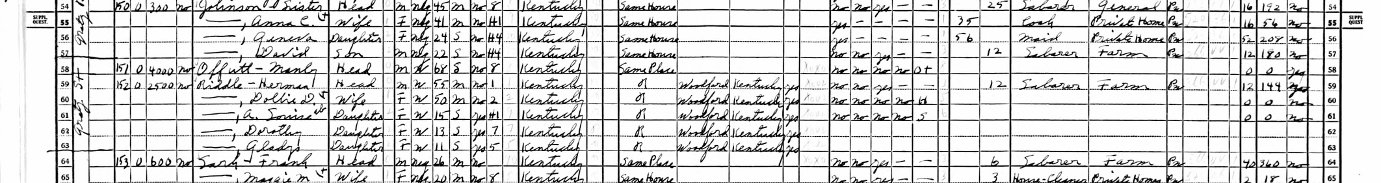 54 150 0 300 no Johnson Sister Head m neg 45 m no 8 Kentucky Same House no no yes — — 25 Laborer General Pw 16 192 no 54
55 —, Anna C. Wife F neg 41 m no H1 Kentucky Same House yes — — — — 35 Cook Private Home Pw 16 56 no 55
56 —, Geneva Daughter F neg 24 S no H4 Kentucky Same House yes — — — — 56 Maid Private Home Pw 52 208 no 56
57 —, David Son m neg 22 S no H4 Kentucky Same House no no yes — — 12 Laborer Farm Pw 12 180 no 57
58 151 0 4000 no Offutt - Manly Head m W 68 S no 8 Kentucky Same Place no no no no Ot 0 0 yes 58
59 152 0 2500 no Riddle - Herman Head m W 55 m no 1 Kentucky R Woodford Kentucky yes no no yes — — 12 Laborer Farm Pw 12 144 yes 59
60 —, Dollie D. Wife F W 50 m no 2 Kentucky R Woodford Kentucky yes no no no no H 0 0 no 60
61 —, A. Louise Daughter F W 15 S yes H1 Kentucky R Woodford Kentucky yes no no no no S 0 0 no 61
62 —, Dorothy Daughter F W 13 S yes 7 Kentucky R Woodford Kentucky yes 62
63 —, Gladys Daughter F W 11 S yes 5 Kentucky R Woodford Kentucky yes 63
64 153 0 600 no Frank Head m neg 26 m no Kentucky Same Place no no yes — — 6 Laborer Farm Pw 40 360 no 64
65 —, Maggie M. Wife F neg 20 m no 8 Kentucky Same House no no yes — — 3 Home-Cleaner Private Home Pw 2 18 no 65
SUPPL. QUEST.
SUPPL. QUEST.